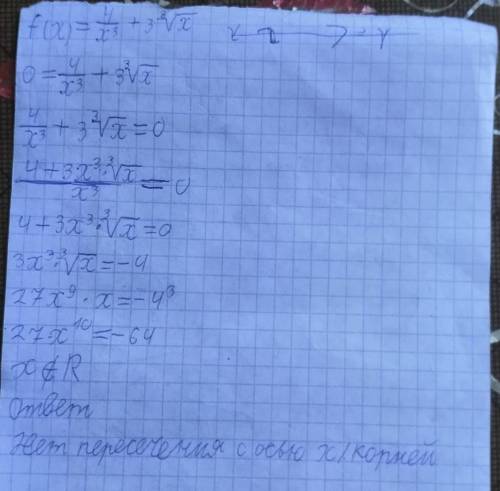 f(x)=4/x³+3∛x
0=4/x³+3∛x
4/x³+3∛x=0
(4+3x³·∛x)/x³=0
4+3x³·∛x=0
3x³·∛x=-4
27x⁹·x=-4³
27x¹⁰=-64
x∉R
Ответ
Нет пересечения с осью x/корней